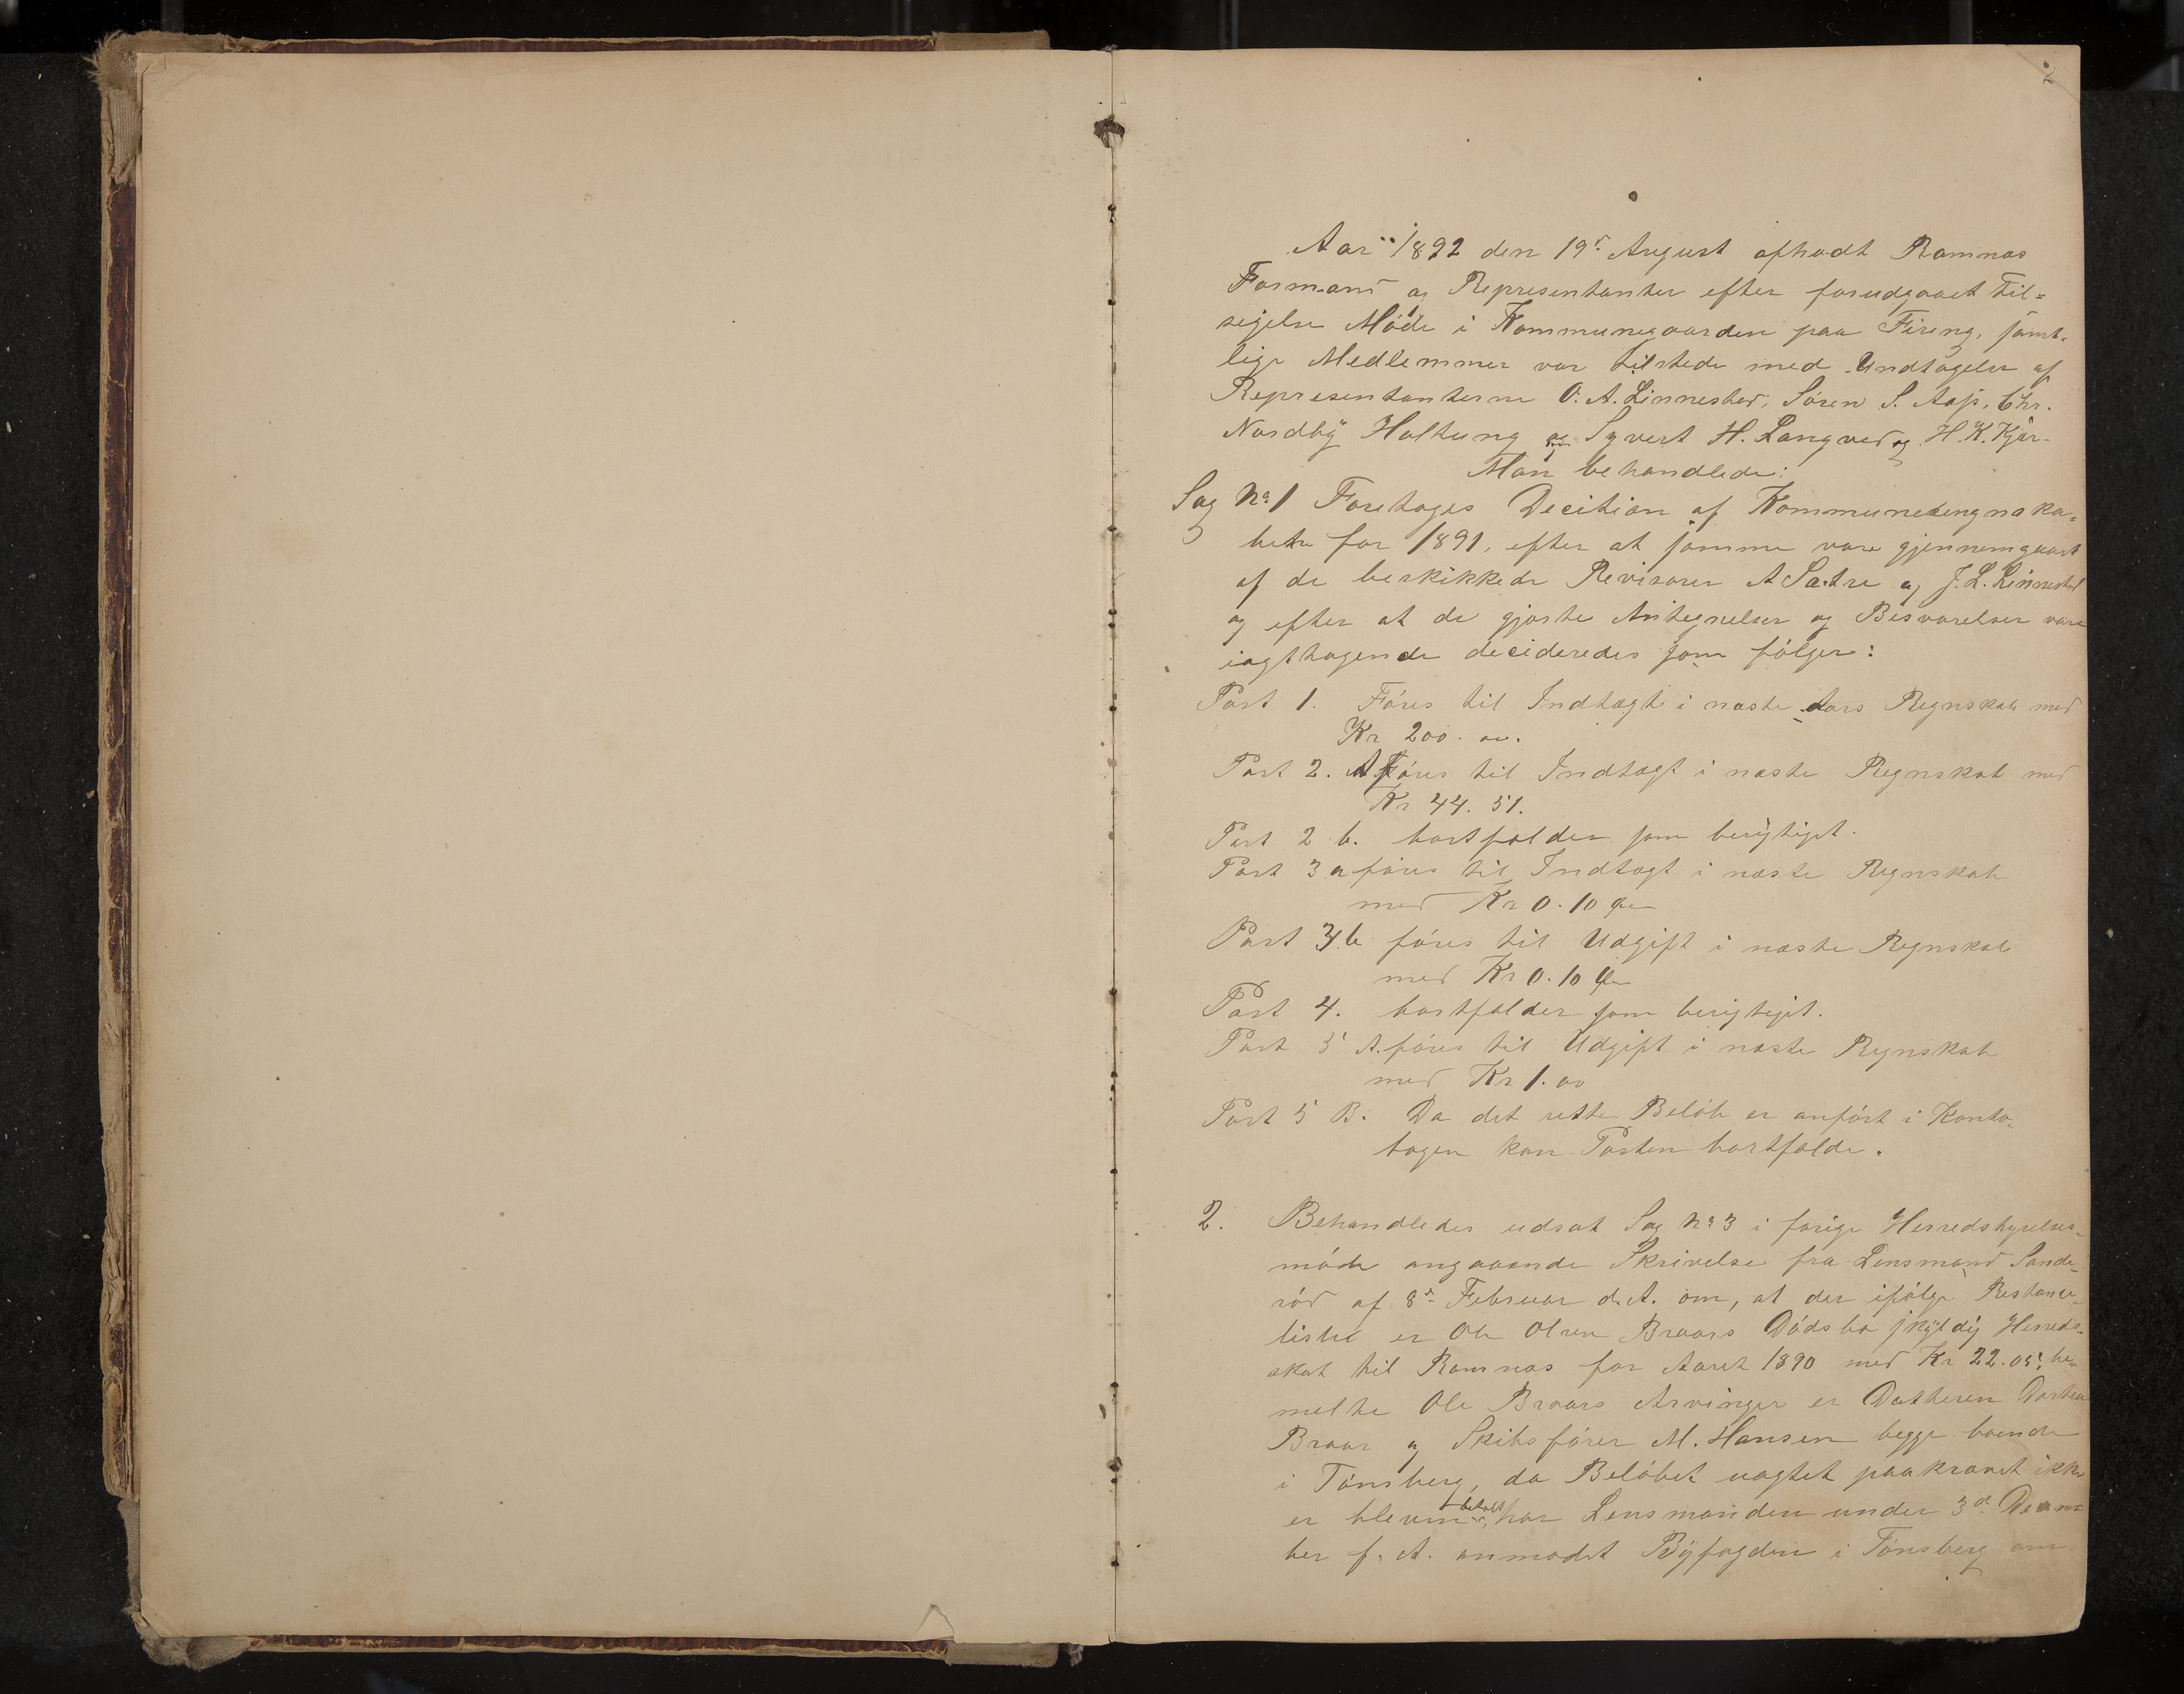 2
Aar 1892 den 19d August afholdt Ramnæs
Formand og Representanter efter forudgaaet Til-
sigelse Møde i Kommunegaarden paa Fireng, samt-
lige Medlemmer var tilstede med Undtagelse af
Representanterne O. A. Linnestad, Søren S. Aasp, Chr.
Nordby Holtung Syvert H. Langved og H. K. Kjær.
Man behandlede:
Sag No 1 Foretoges Decition af Kommuneregnska-
bet for 1891, efter at samme vare gjennemgaaet
af de beskikkede Revisorer A Sætre og J. L. Linnestad
og efter at de gjorte Antegnelser og Besvarelser vare
iagttagende decideredes som følger:
Post 1. Føres til Indtægt i næste Aars Regnskab med
Kr 200. oo.
Post 2. A Føres til Indtægt i næste Regnskab med
Kr 44. 51.
Post 2 b. bortfalder som berigtiget.
Post 3 a føres til Indtægt i næste Regnskab
med Kr 0.10 Øre
Post 3 b føres til Udgift i næste Regnskab
med Kr 0.10 Øre
Post 4. bortfalder som berigtiget.
Post 5 A. føres til Udgift i næste Regnskab
med Kr 1. oo
Post 5 B. Da det rette Beløb er anført i Konto-
bogen kan Posten bortfalde.
2. Behandledes udsat Sag No 3 i forige Herredstyrelses-
møde angaaende Skrivelse fra Lensmand Sande-
rød af 8d Februar d. A. om, at der ifølge Restance-
liste er Ole Olsen Braars Dødsbo skyldig Herreds-
skat til Ramnæs for Aaret 1890 med Kr 22.05, be-
meldte Ole Braars Arvinger er Datteren Dorthea
Braar og Skibsfører M. Hansen begge boende
i Tønsberg, da Beløbet uagtet paakrævet ikke
er bleven betalt har Lensmanden under 3d Decem-
ber f. A. anmodet Byfogden i Tønsberg om